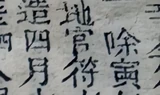 除寅
地官符
造四月